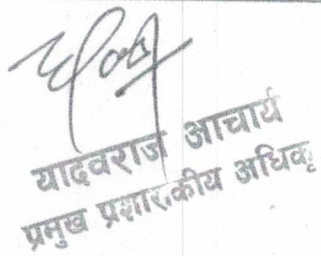 यादवराज आचार्य
प्रमुख प्रशासकीय अधिकृ